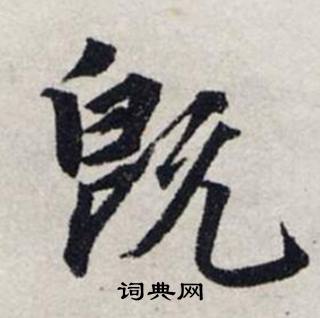 既
词典网